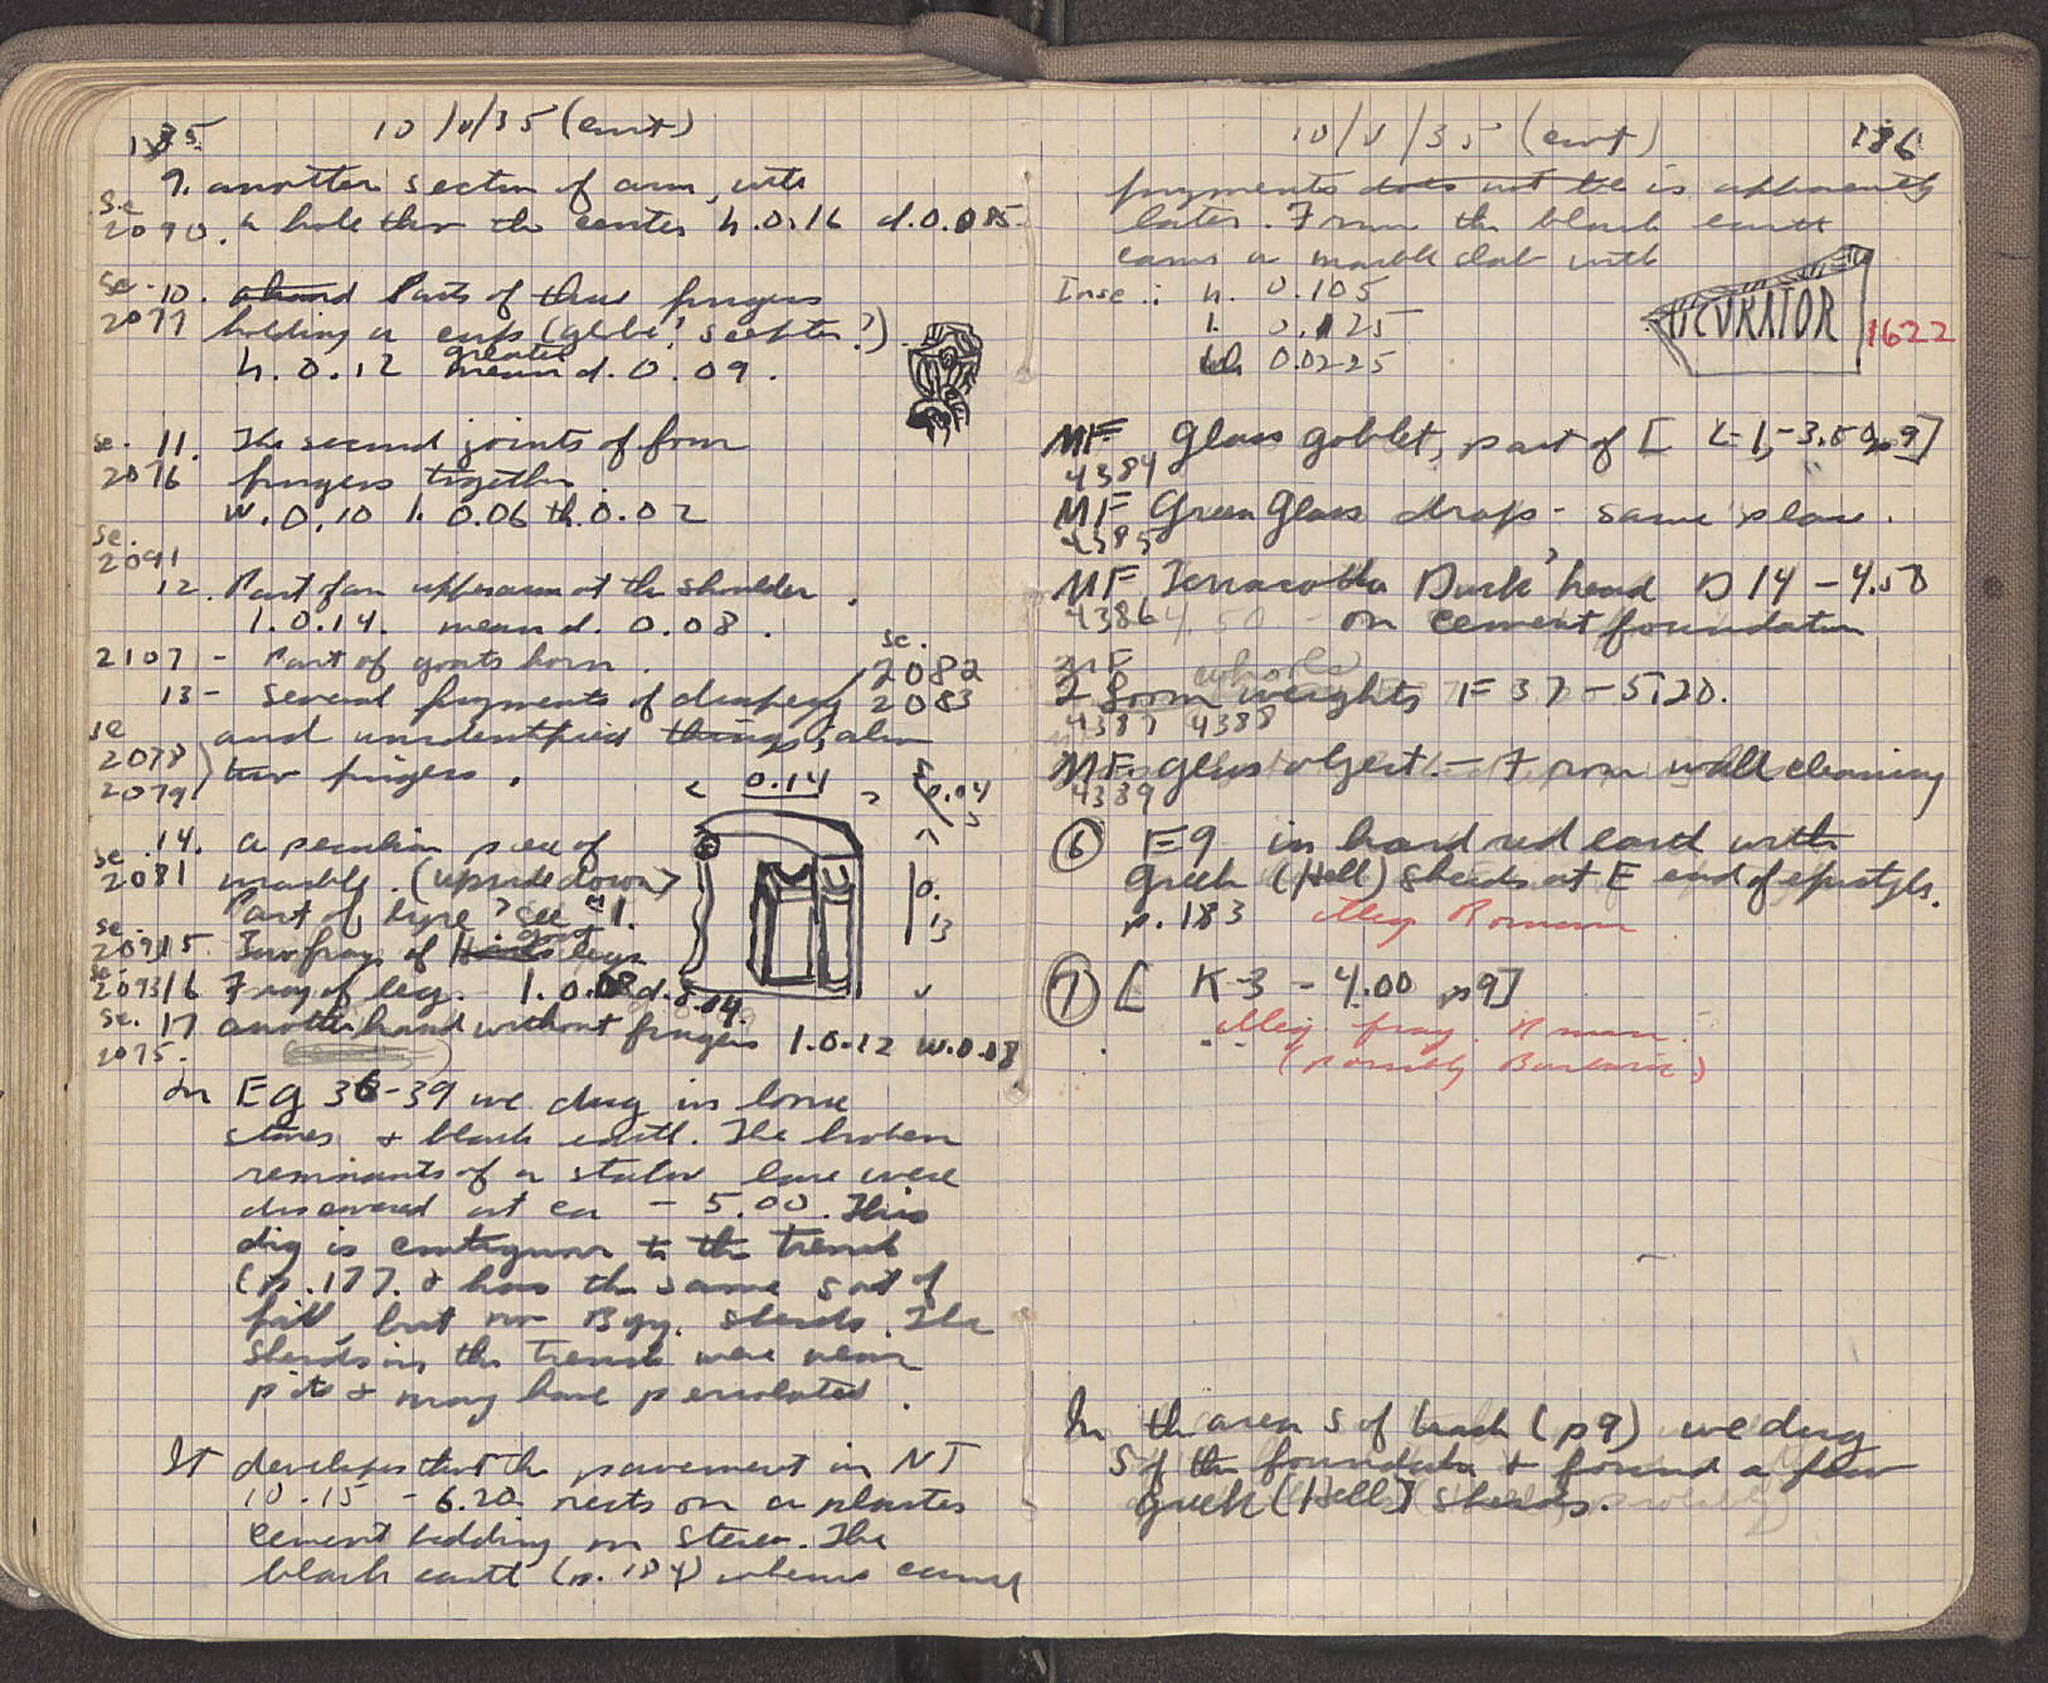 185
10/V/35 (cont)
9. another section of arm, with
Sc 2090. a hole thru the center h.0.16 d.0.085.
Sc. 10. a hand Parts of three fingers
2077 holding a cup (globe? scepter?).
h. 0.12 greater mean d. 0.09.
Sc. 11. The second joints of four
2076 fingers together.
w. 0.10 l. 0.06 th. 0.02
Sc.
2091
12. Part of an upperarm at the shoulder.
l. 0.14. mean d. 0.08.
2107 - Part of goats horn.
Sc. 2082
13 - Several fragments of drapery 2083
Sc and unidentified things; also
2078
2079 two fingers.
< 0.14 >
0.04
Sc 14. A peculiar piece of
2081 marble. (upside down)
Part of lyre? see #1.
0.13
Sc. 2092 15. Two frags of Hands goat legs
Sc. 2093 16 Frag of leg. l. 0.08 d. 0.04.
Sc. 17 another hand without fingers l. 0.12 w. 0.08
2075.
In EG 36-39 we dug in loose
stones & black earth. The broken
remnants of a statue base were
discovered at ca - 5.00. This
dig is contiguous to the trench
(p. 177. & has the same sort of
fill, but no Byz. sherds. The
sherds in the trench were near
pits & may have percolated.
It develops that the pavement in NT
10-15 - 6.20 rests on a plaster
cement bedding on stereo. The
black earth (p. 184) whence came
10/V/35 (cont)
186
fragments does not be is apparently
later. From the black earth
came a marble slab with
Insc.: h. 0.105
l. 0.125
th 0.0225
CURATOR
1622
MF Glass goblet, part of [ L-1, -3.50, p9]
4384
MF Green Glass drops - same place.
4385
MF Terracotta Duck' head D 14 - 4.50
4386 4.50 - on cement foundation
MF whorls
2 Loom weights F 37 - 5.20.
4387 4388
MF. glass object. - From wall cleaning
4389
⑥ E9 in hard red earth with
Greek (Hell) sherds at E end of epistyle.
p. 183 Meg Roman
⑦ [ K-3 - 4.00 p9]
Meg. frag. Roman.
(possibly Barbaric)
In the area S of track (p9) we dug
S of the foundation & found a few
Greek (Hell) sherds.